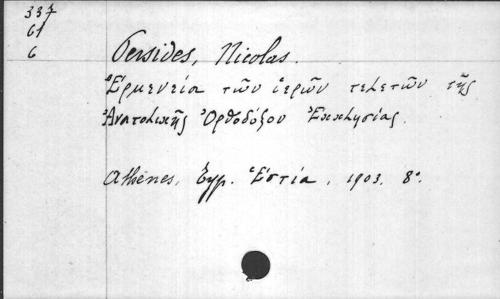 337
61
6
Persides, Nicolas.
Ἑρμενεία τῶν ἱερῶν τελετῶν τῆς
Ἀνατολικῆς Ὀρθοδόξου Ἐκκλησίας.
Athènes, Ἐγρ. Ἑστία, 1903. 8°.